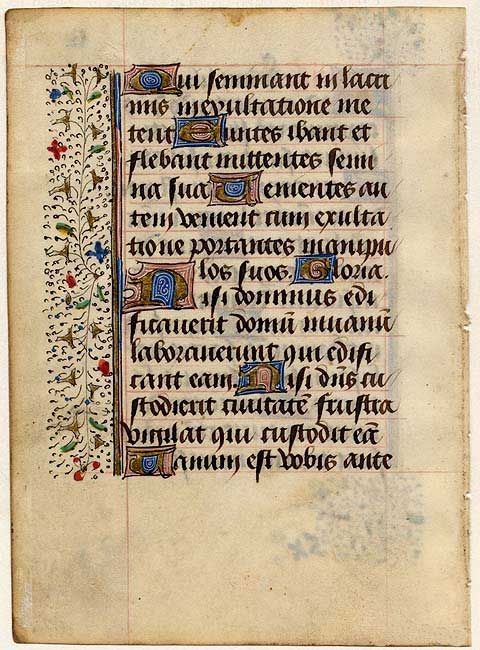 Qui seminant in lacri
mis in exultatione me
tent Euntes ibant et
flebant mittentes semi
na sua Venientes au
tem venient cum exulta
tione portantes manipu
los suos. Gloria.
Nisi dominus edi
ficaverit domū in vanū
laboraverunt qui edifi
cant eam. Nisi dn̄s cu
stodierit civitatē frustra
vigilat qui custodit eā
Vanum est vobis ante